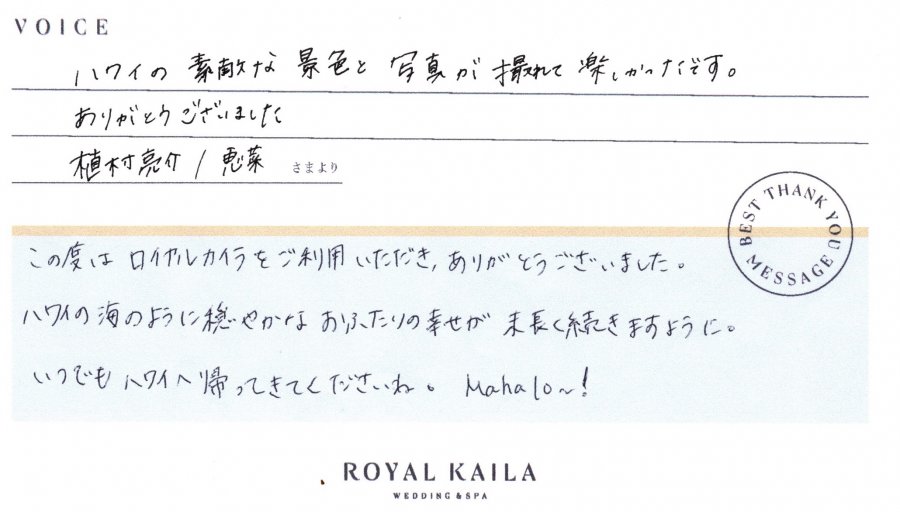 VOICE
ハワイの 素敵な 景色と 写真が 撮れて 楽しかったです。
ありがとうございました
植村亮介 / 恵菜 さまより
BEST THANK YOU MESSAGE
この度は ロイヤルカイラを ご利用 いただき, ありがとうございました。
ハワイの 海のように 穏やかな おふたりの 幸せが 末長く続きますように。
いつでも ハワイへ 帰ってきてくださいね。 Mahalo~!
ROYAL KAILA
WEDDING & SPA